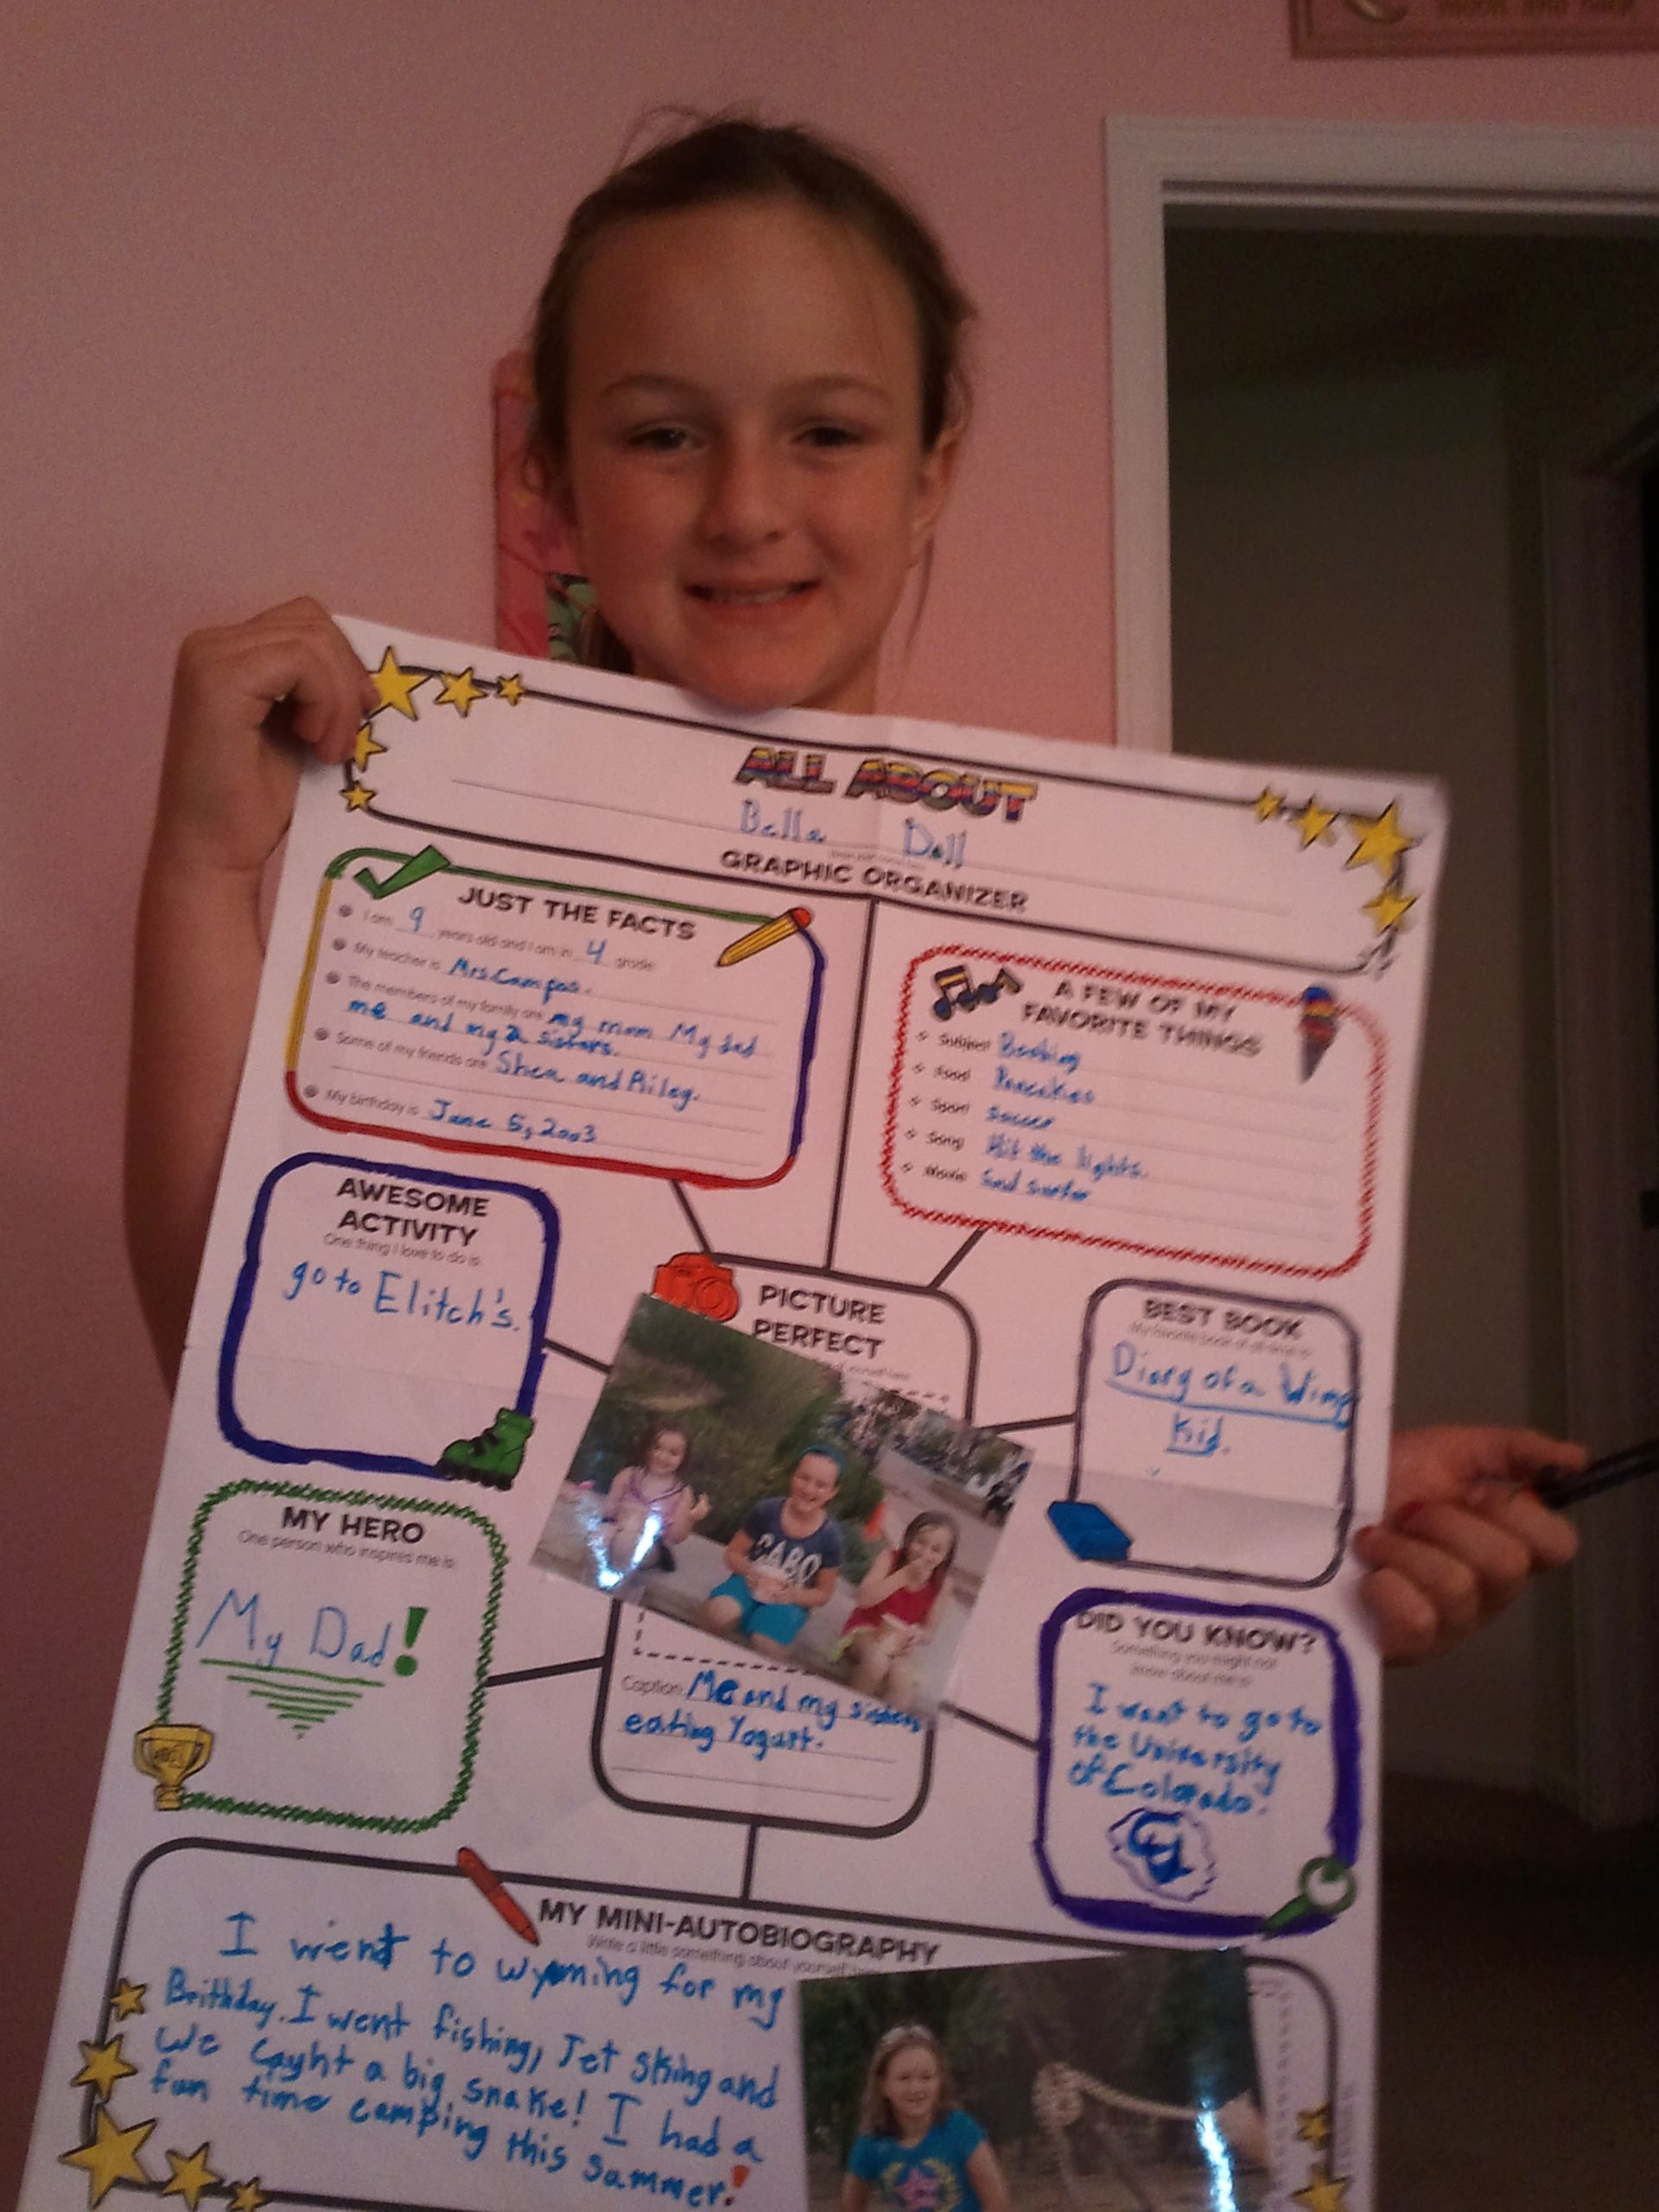 ALL ABOUT
Bella Doll
GRAPHIC ORGANIZER
JUST THE FACTS
I am 9 years old and I am in 4 grade
My teacher is Mrs. Campos.
The members of my family are my mom My dad
me and my 2 sisters.
Some of my friends are Shea and Riley.
My birthday is June 5, 2003
A FEW OF MY
FAVORITE THINGS
Subject
Food Pancakes
Sport soccer
Song Hit the lights.
Movie Soul surfer
AWESOME
ACTIVITY
One thing I love to do is
go to Elitch's.
PICTURE
PERFECT
Caption Me and my sisters
eating Yogurt.
CABO
BEST BOOK
My favorite book of all time is
Diary of a Wimpy
Kid.
MY HERO
One person who inspires me is
My Dad!
#1
DID YOU KNOW?
Something you might not
know about me is
I want to go to
the University
of Colorado.
CU
MY MINI-AUTOBIOGRAPHY
Write a little something about yourself
I went to wyoming for my
Brithday. I went fishing, Jet sking and
we cayht a big snake! I had a
fun time camping this summer!